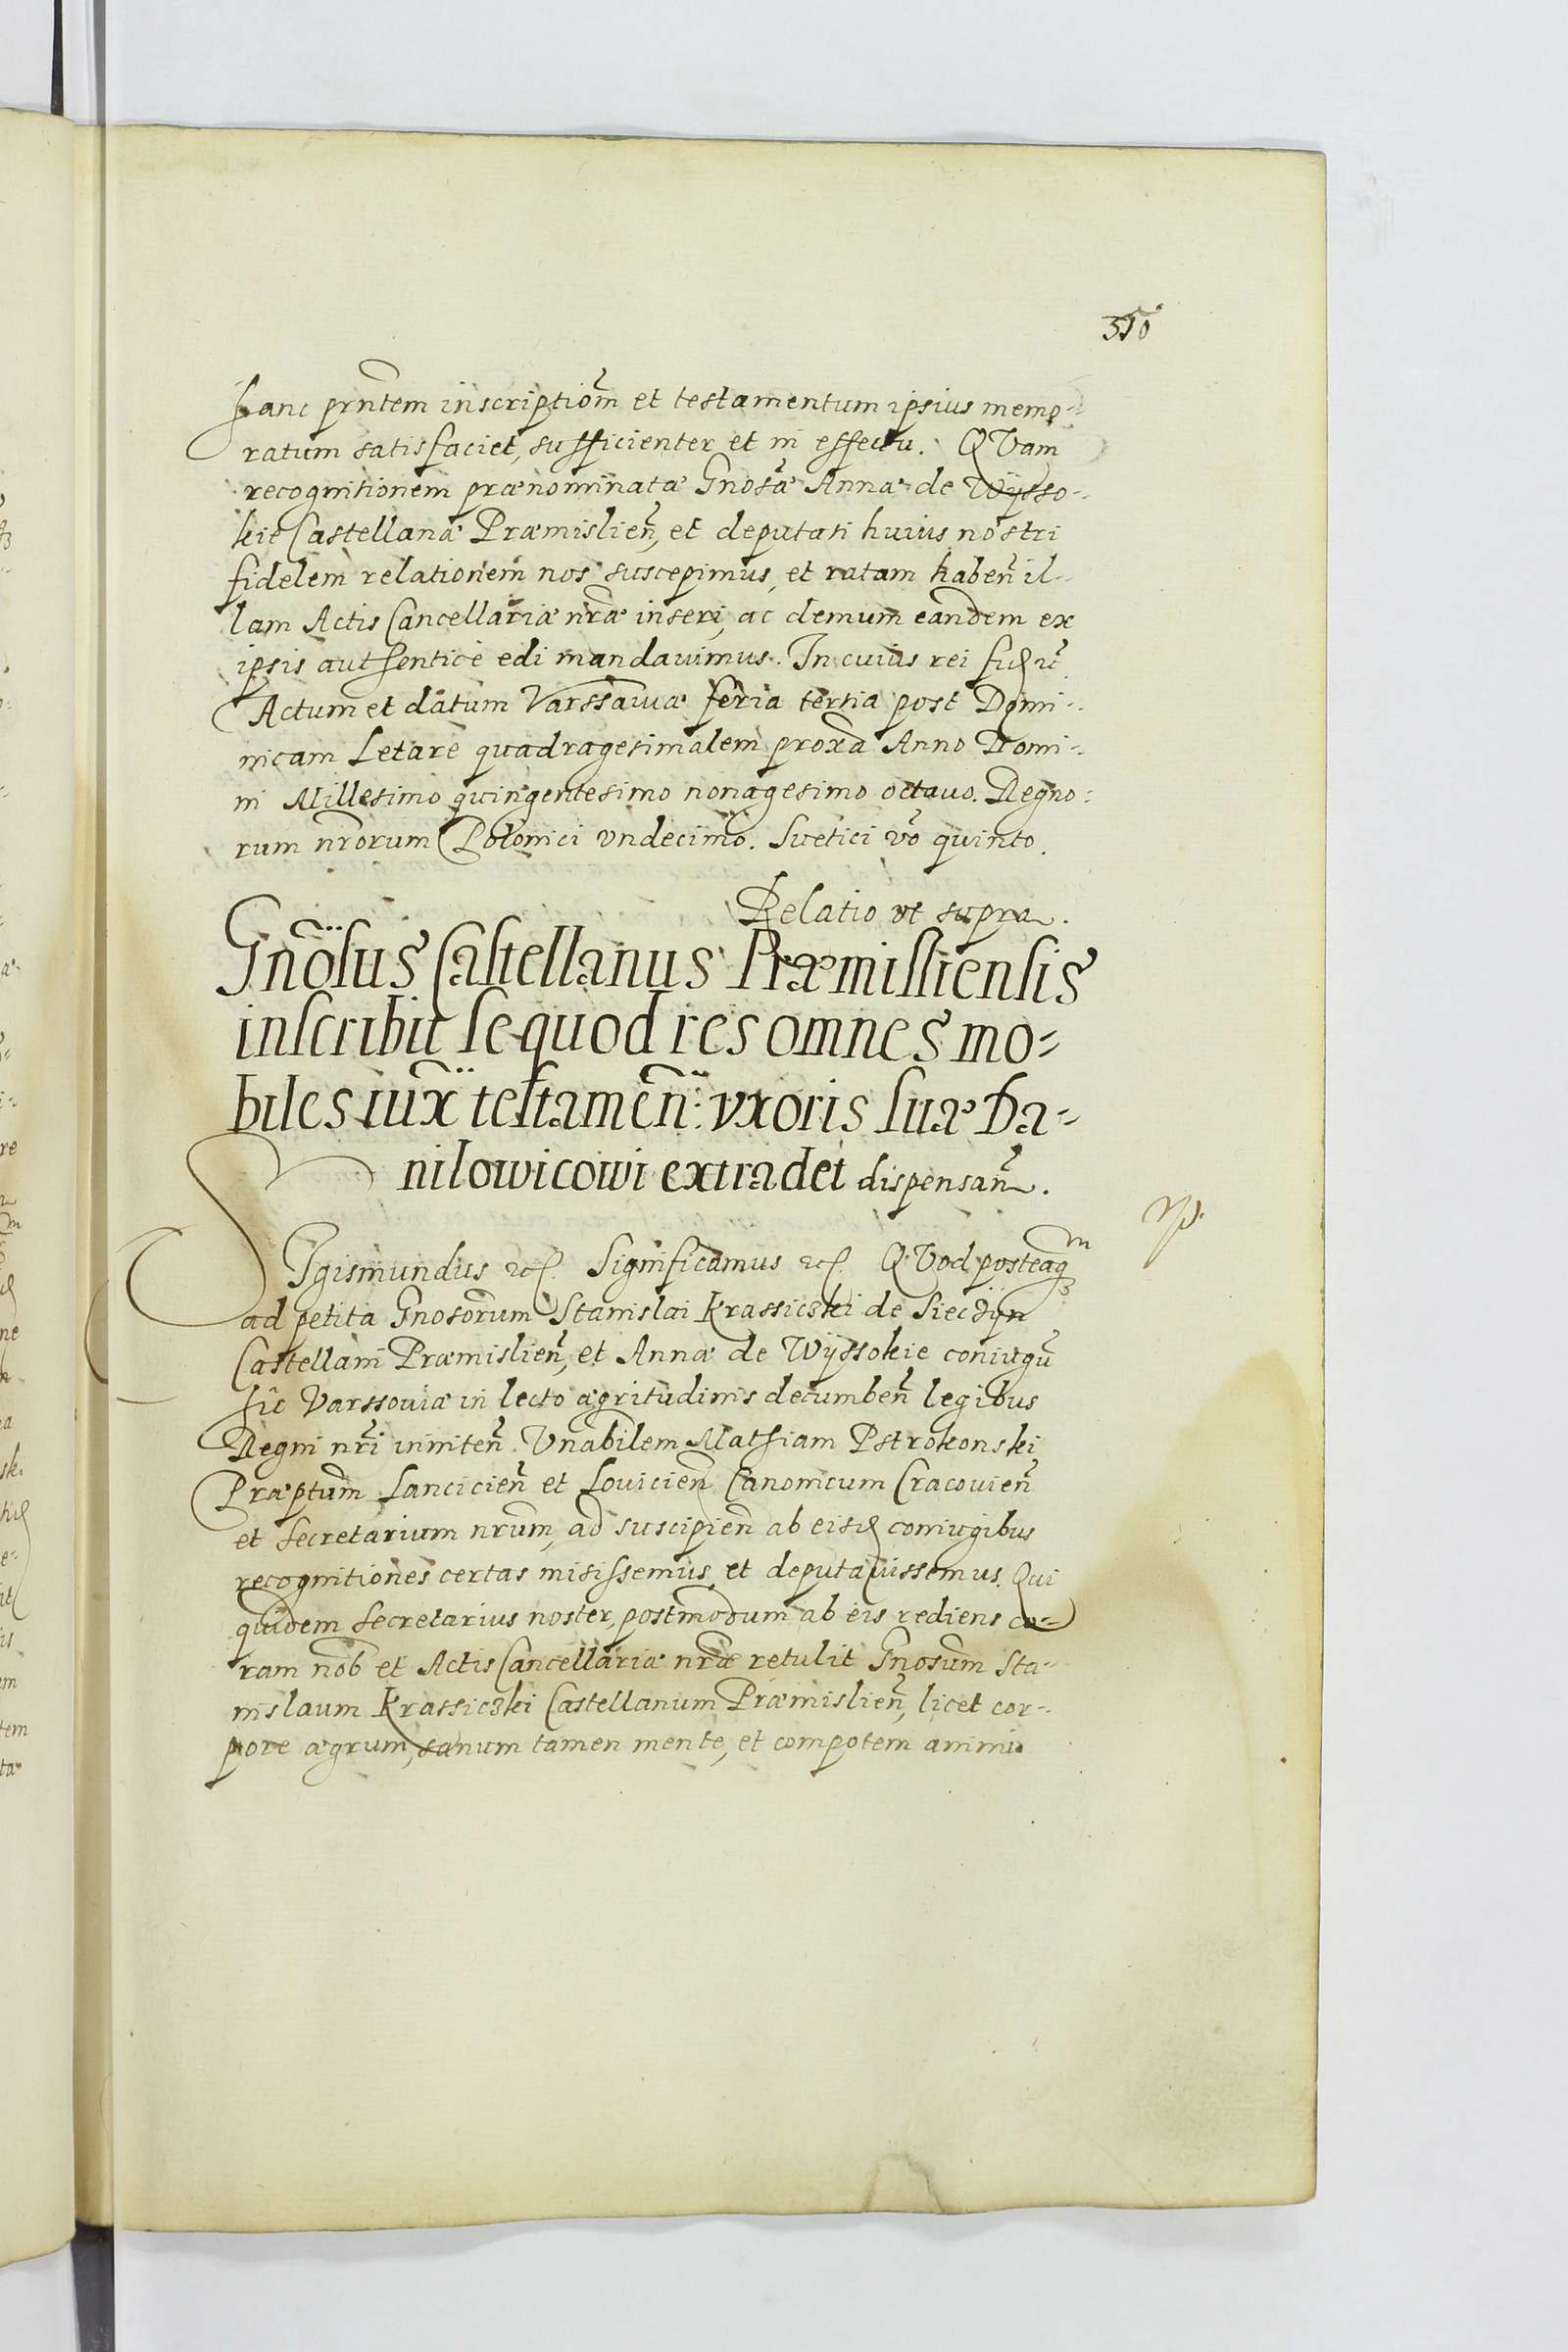 350
hanc prñtem inscriptiõm et testamentum ipsius memo-
ratum satisfaciet, sufficienter et in effectu. QVam
recognitionem prænominatæ Gnosæ Annæ de Wÿsso-
kie Castellanæ Præmislieñ, et deputati huius nostri
fidelem relationem nos suscepimus, et ratam habeñ il-
lam Actis Cancellariæ nræ inseri, ac demum eandem ex
ipsis authentice edi mandauimus. In cuius rei
Actum et datum Varssauiæ feria tertia post Domi-
nicam Letare quadragesimalem proxa Anno Domi-
ni Millesimo quingentesimo nonagesimo octauo. Regno-
rum nrorum Polonici vndecimo. Suetici vo quinto.
Relatio vt supra.
Gnosus Castellanus Præmisliensis
inscribit se quod res omnes mo-
biles iux testamen: vxoris suæ Da-
nilowicowi extradet dispensañ.
SIgismundus etc. Significamus etc. QVod posteaqm
ad petita Gnosorum Stanislai Krassiczki de Sieczÿn
Castellani Præmislieñ, et Annæ de Wÿssokie coniugũ
hic Varssouiæ in lecto ægritudinis decumbeñ legibus
Regni nri inniteñ. Vnabilem Mathiam Pstrokonski
Præptum Lancicieñ et Louicieñ Canonicum Cracouieñ
et Secretarium nrum, ad suscipieñ ab eisd coniugibus
recognitiones certas misissemus et deputauissemus. Qui
quidem Secretarius noster, postmodum ab eis rediens co-
ram nob et Actis Cancellariæ nræ retulit Gnosum Sta-
nislaum Krassiczki Castellanum Præmislieñ, licet cor-
pore ægrum, sanum tamen mente, et compotem animi